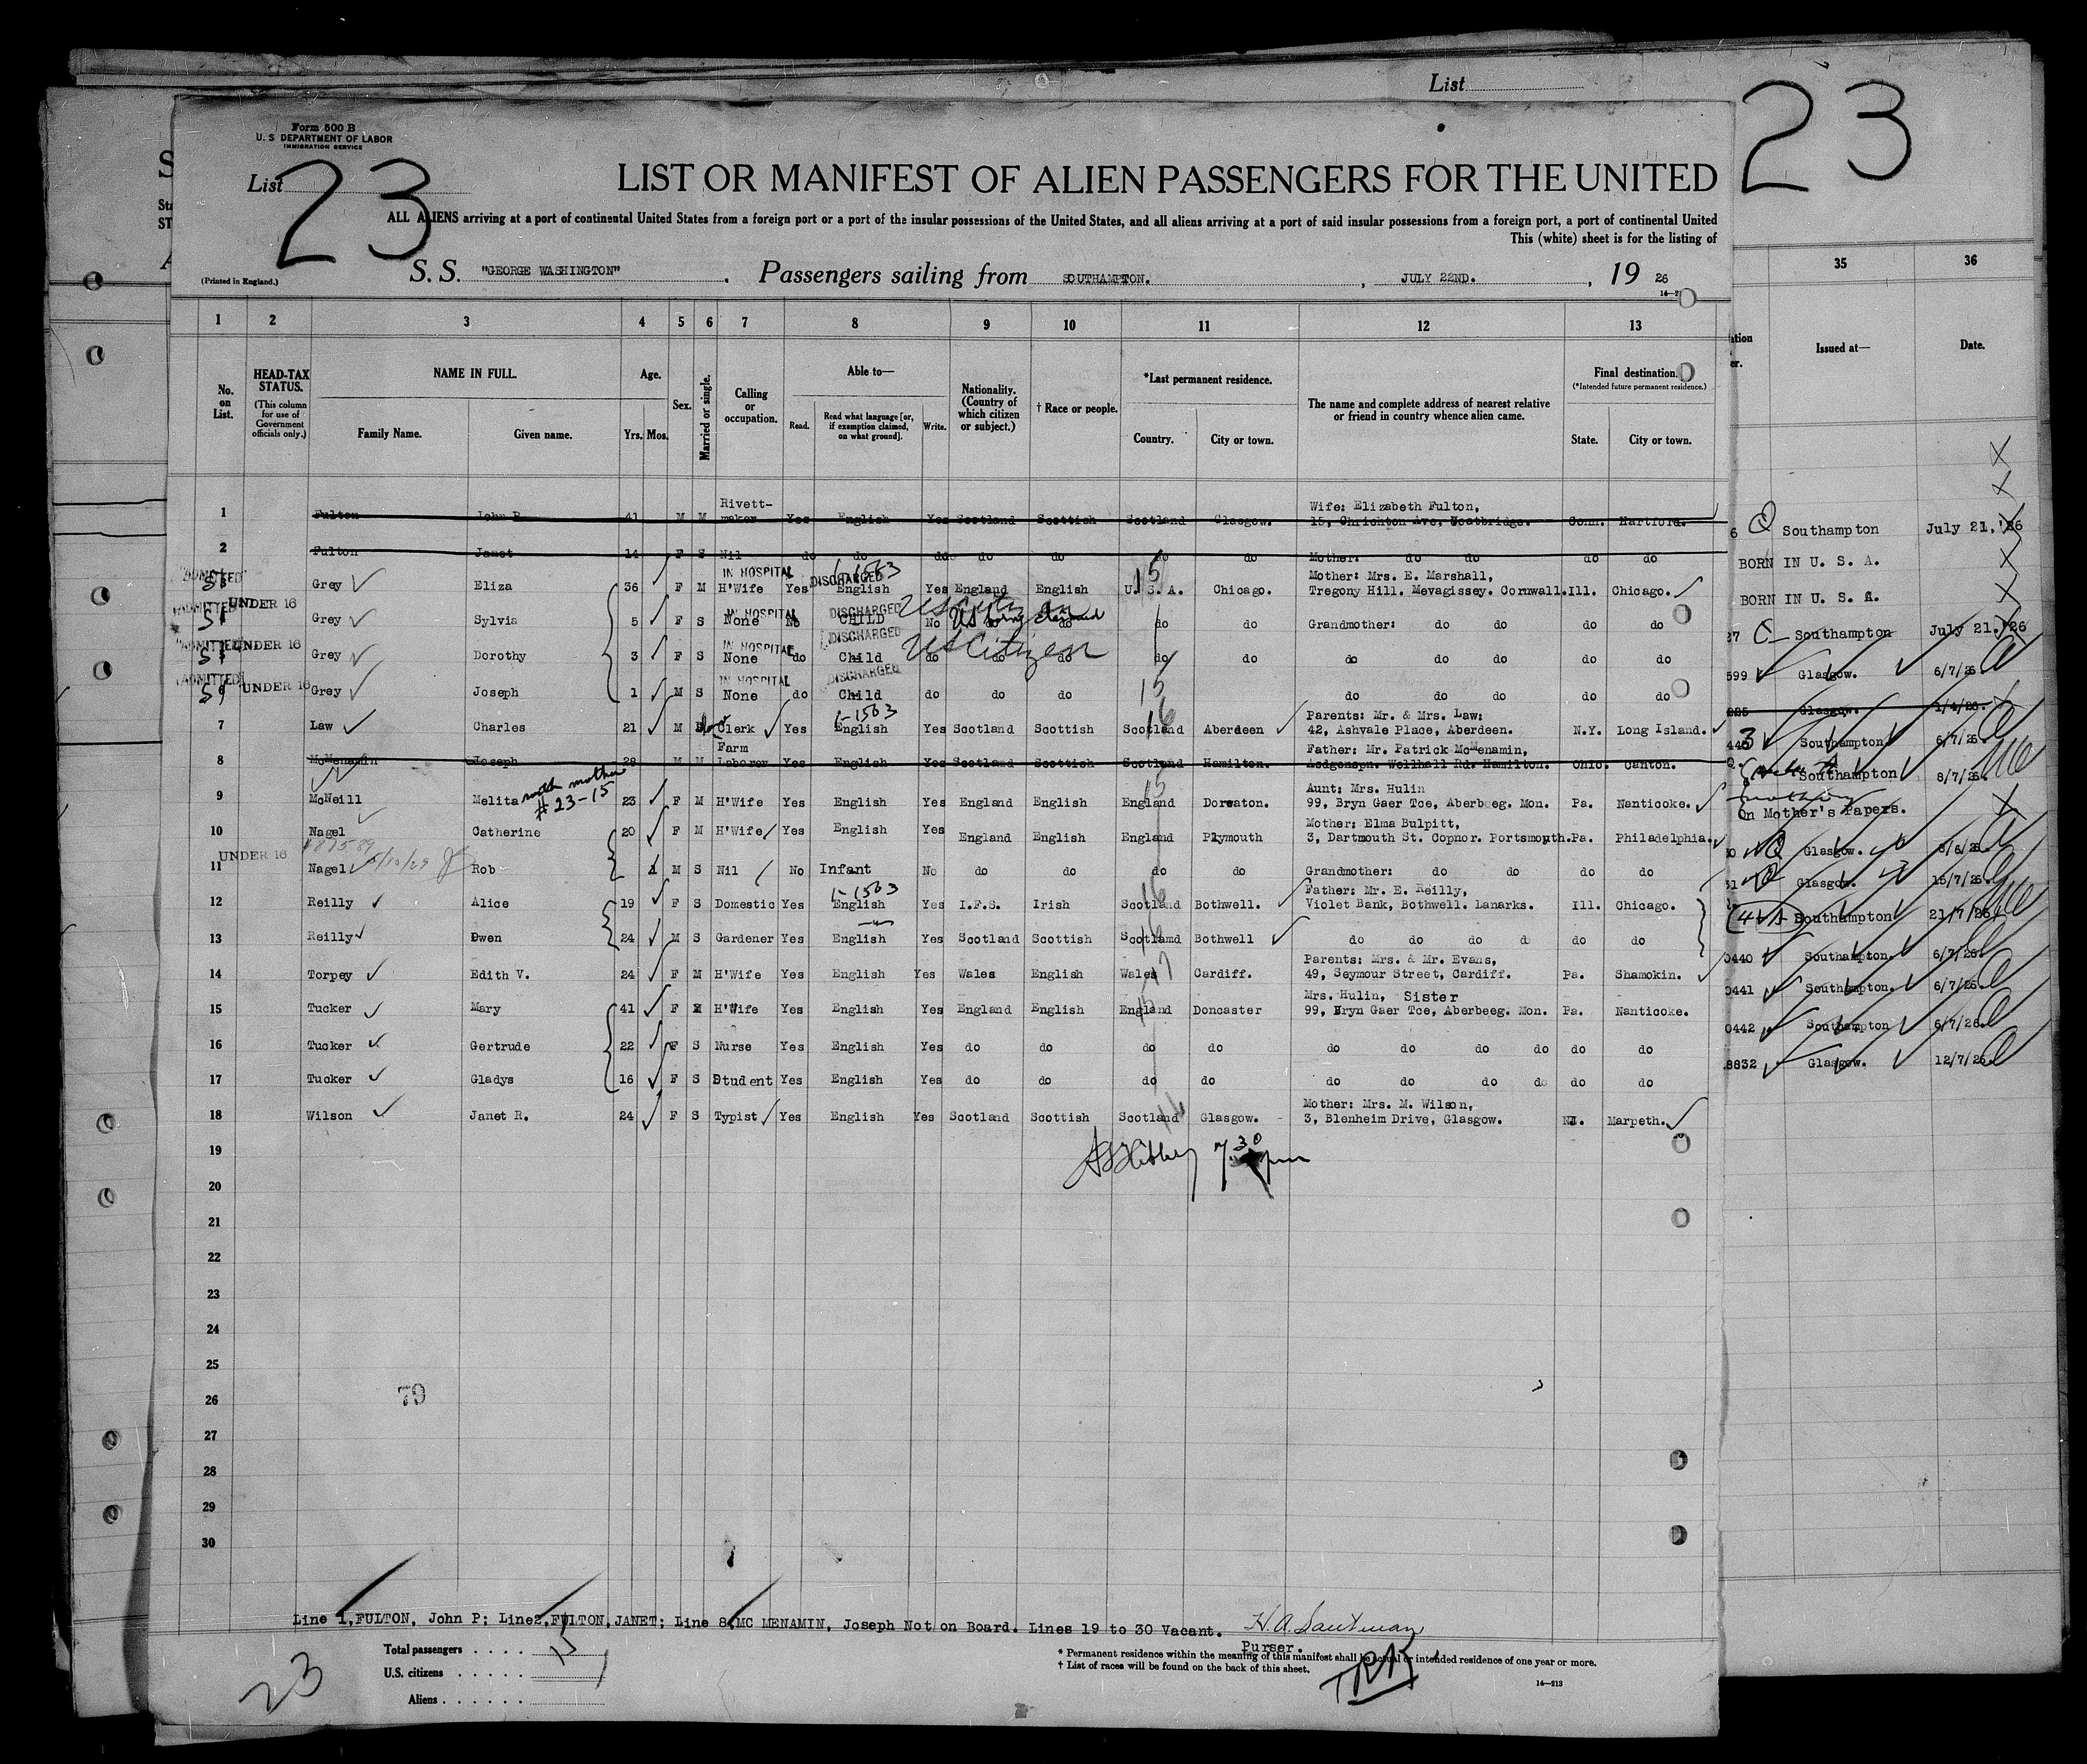 List
23
Form 500 B
U. S DEPARTMENT OF LABOR
IMMIGRATION SERVICE
List 23
LIST OR MANIFEST OF ALIEN PASSENGERS FOR THE UNITED
ALL ALIENS arriving at a port of continental United States from a foreign port or a port of the insular possessions of the United States, and all aliens arriving at a port of said insular possessions from a foreign port, a port of continental United
This (white) sheet is for the listing of
(Printed in England.)
S. S. "GEORGE WASHINGTON" . Passengers sailing from SOUTHAMPTON. , JULY 22ND. , 19 26
1 2 3 4 5 6 7 8 9 10 11 12 13 35 36
No. on List.
HEAD-TAX STATUS.
(This column for use of Government officials only.)
NAME IN FULL.
Family Name. Given name.
Age.
Yrs. Mos.
Sex.
Married or single.
Calling or occupation.
Able to—
Read. Read what language [or, if exemption claimed, on what ground]. Write.
Nationality. (Country of which citizen or subject.)
† Race or people.
*Last permanent residence.
Country. City or town.
The name and complete address of nearest relative or friend in country whence alien came.
Final destination.
(*Intended future permanent residence.)
State. City or town.
Issued at— Date.
1 Fulton John P. 41 M M Rivett-maker Yes English Yes Scotland Scottish Scotland Glasgow. Wife: Elizabeth Fulton, 15, Chrichton Ave, Coatbridge. Conn. Hartford.
2 Fulton Janet 14 F S Nil do do do do do do do Mother: do do do do
ADMITTED Grey Eliza 36 F M H'Wife IN HOSPITAL Yes DISCHARGED English Yes England English U. S. A. Chicago. Mother: Mrs. E. Marshall, Tregony Hill. Mevagissey. Cornwall. Ill. Chicago.
ADMITTED UNDER 16 Grey Sylvia 5 F S IN HOSPITAL None No DISCHARGED CHILD No do do do do Grandmother: do do do do
US Citizen
ADMITTED UNDER 16 Grey Dorothy 3 F S IN HOSPITAL None do DISCHARGED Child do do do do do do do do do do
US Citizen
ADMITTED UNDER 16 Grey Joseph 1 M S IN HOSPITAL None do DISCHARGED Child do do do do do do do do do
7 Law Charles 21 M Clerk Yes English Yes Scotland Scottish Scotland Aberdeen Parents: Mr. & Mrs. Law: 42, Ashvale Place, Aberdeen. N.Y. Long Island.
8 McMenamin Joseph 29 M M Farm Laborer Yes English Yes Scotland Scottish Scotland Hamilton. Father: Mr. Patrick McMenamin, Wellhall Rd. Hamilton. Ohio. Canton.
9 McNeill Melita with mother #23-15 23 F M H'Wife Yes English Yes England English England Aunt: Mrs. Hulin 99, Bryn Gaer Tce, Aberbeeg. Mon. Pa. Nanticoke.
10 Nagel Catherine 20 F M H'Wife Yes English Yes England English England Plymouth Mother: Elma Bulpitt, 3, Dartmouth St. Copnor. Portsmouth. Pa. Philadelphia.
UNDER 16
11 Nagel Rob M S Nil No Infant No do do do do Grandmother: do do do do
12 Reilly Alice 19 F S Domestic Yes English Yes I.F.S. Irish Scotland Bothwell. Father: Mr. E. Reilly, Violet Bank, Bothwell. Lanarks. Ill. Chicago.
13 Reilly Owen 24 M S Gardener Yes English Yes Scotland Scottish Scotland Bothwell do do do do do do
14 Torpey Edith V. 24 F M H'Wife Yes English Yes Wales English Wales Cardiff. Parents: Mrs. & Mr. Evans, 49, Seymour Street, Cardiff. Pa. Shamokin.
15 Tucker Mary 41 F M H'Wife Yes English Yes England English England Doncaster Mrs. Hulin, Sister 99, Bryn Gaer Tce, Aberbeeg. Mon. Pa. Nanticoke.
16 Tucker Gertrude 22 F S Nurse Yes English Yes do do do do do do do do do do
17 Tucker Gladys 16 F S Student Yes English Yes do do do do do do do do do do
18 Wilson Janet R. 24 F S Typist Yes English Yes Scotland Scottish Scotland Glasgow. Mother: Mrs. M. Wilson, 3, Blenheim Drive, Glasgow. NJ. Marpeth.
19
20
21
22
23
24
25
26
27
28
29
30
79
Southampton July 21, '26
BORN IN U. S. A.
BORN IN U. S. A.
27 Southampton July 21. '26
599 Glasgow. 6/7/26
Glasgow. 1/4/26.
Southampton 6/7/26.
Southampton 8/7/26.
On Mother's Papers.
Glasgow.
Glasgow. 15/7/26.
Southampton 21/7/26
0440 Southampton. 6/7/26.
0441 Southampton. 6/7/26.
0442 Southampton 6/7/26.
8832 Glasgow. 12/7/26.
Line 1, FULTON, John P; Line2, FULTON, JANET; Line 8, MC MENAMIN, Joseph Not on Board. Lines 19 to 30 Vacant.
Purser.
Total passengers . . . . 15
U.S. citizens . . . . .
Aliens . . . . . .
* Permanent residence within the meaning of this manifest shall be actual or intended residence of one year or more.
† List of races will be found on the back of this sheet.
14—213
23